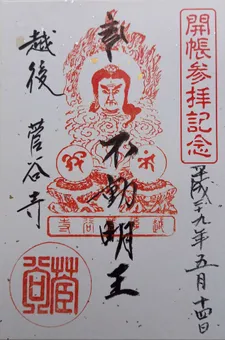 開帳参拝記念
平成廿九年五月十四日
奉
不動明王
越後 菅谷寺